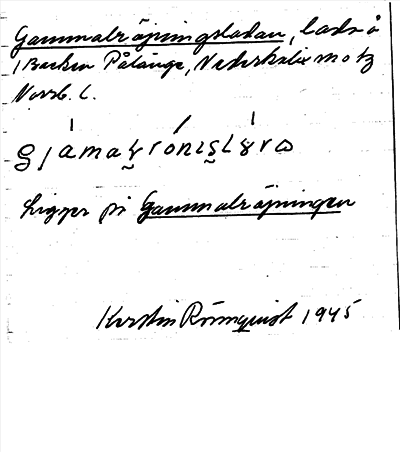 Gammalröjningsladan, lada å
i Backen Pålänge, Nederkalix mot
Norrb. l.
ligger på Gammalröjningen
Kerstin Rönnquist 1945